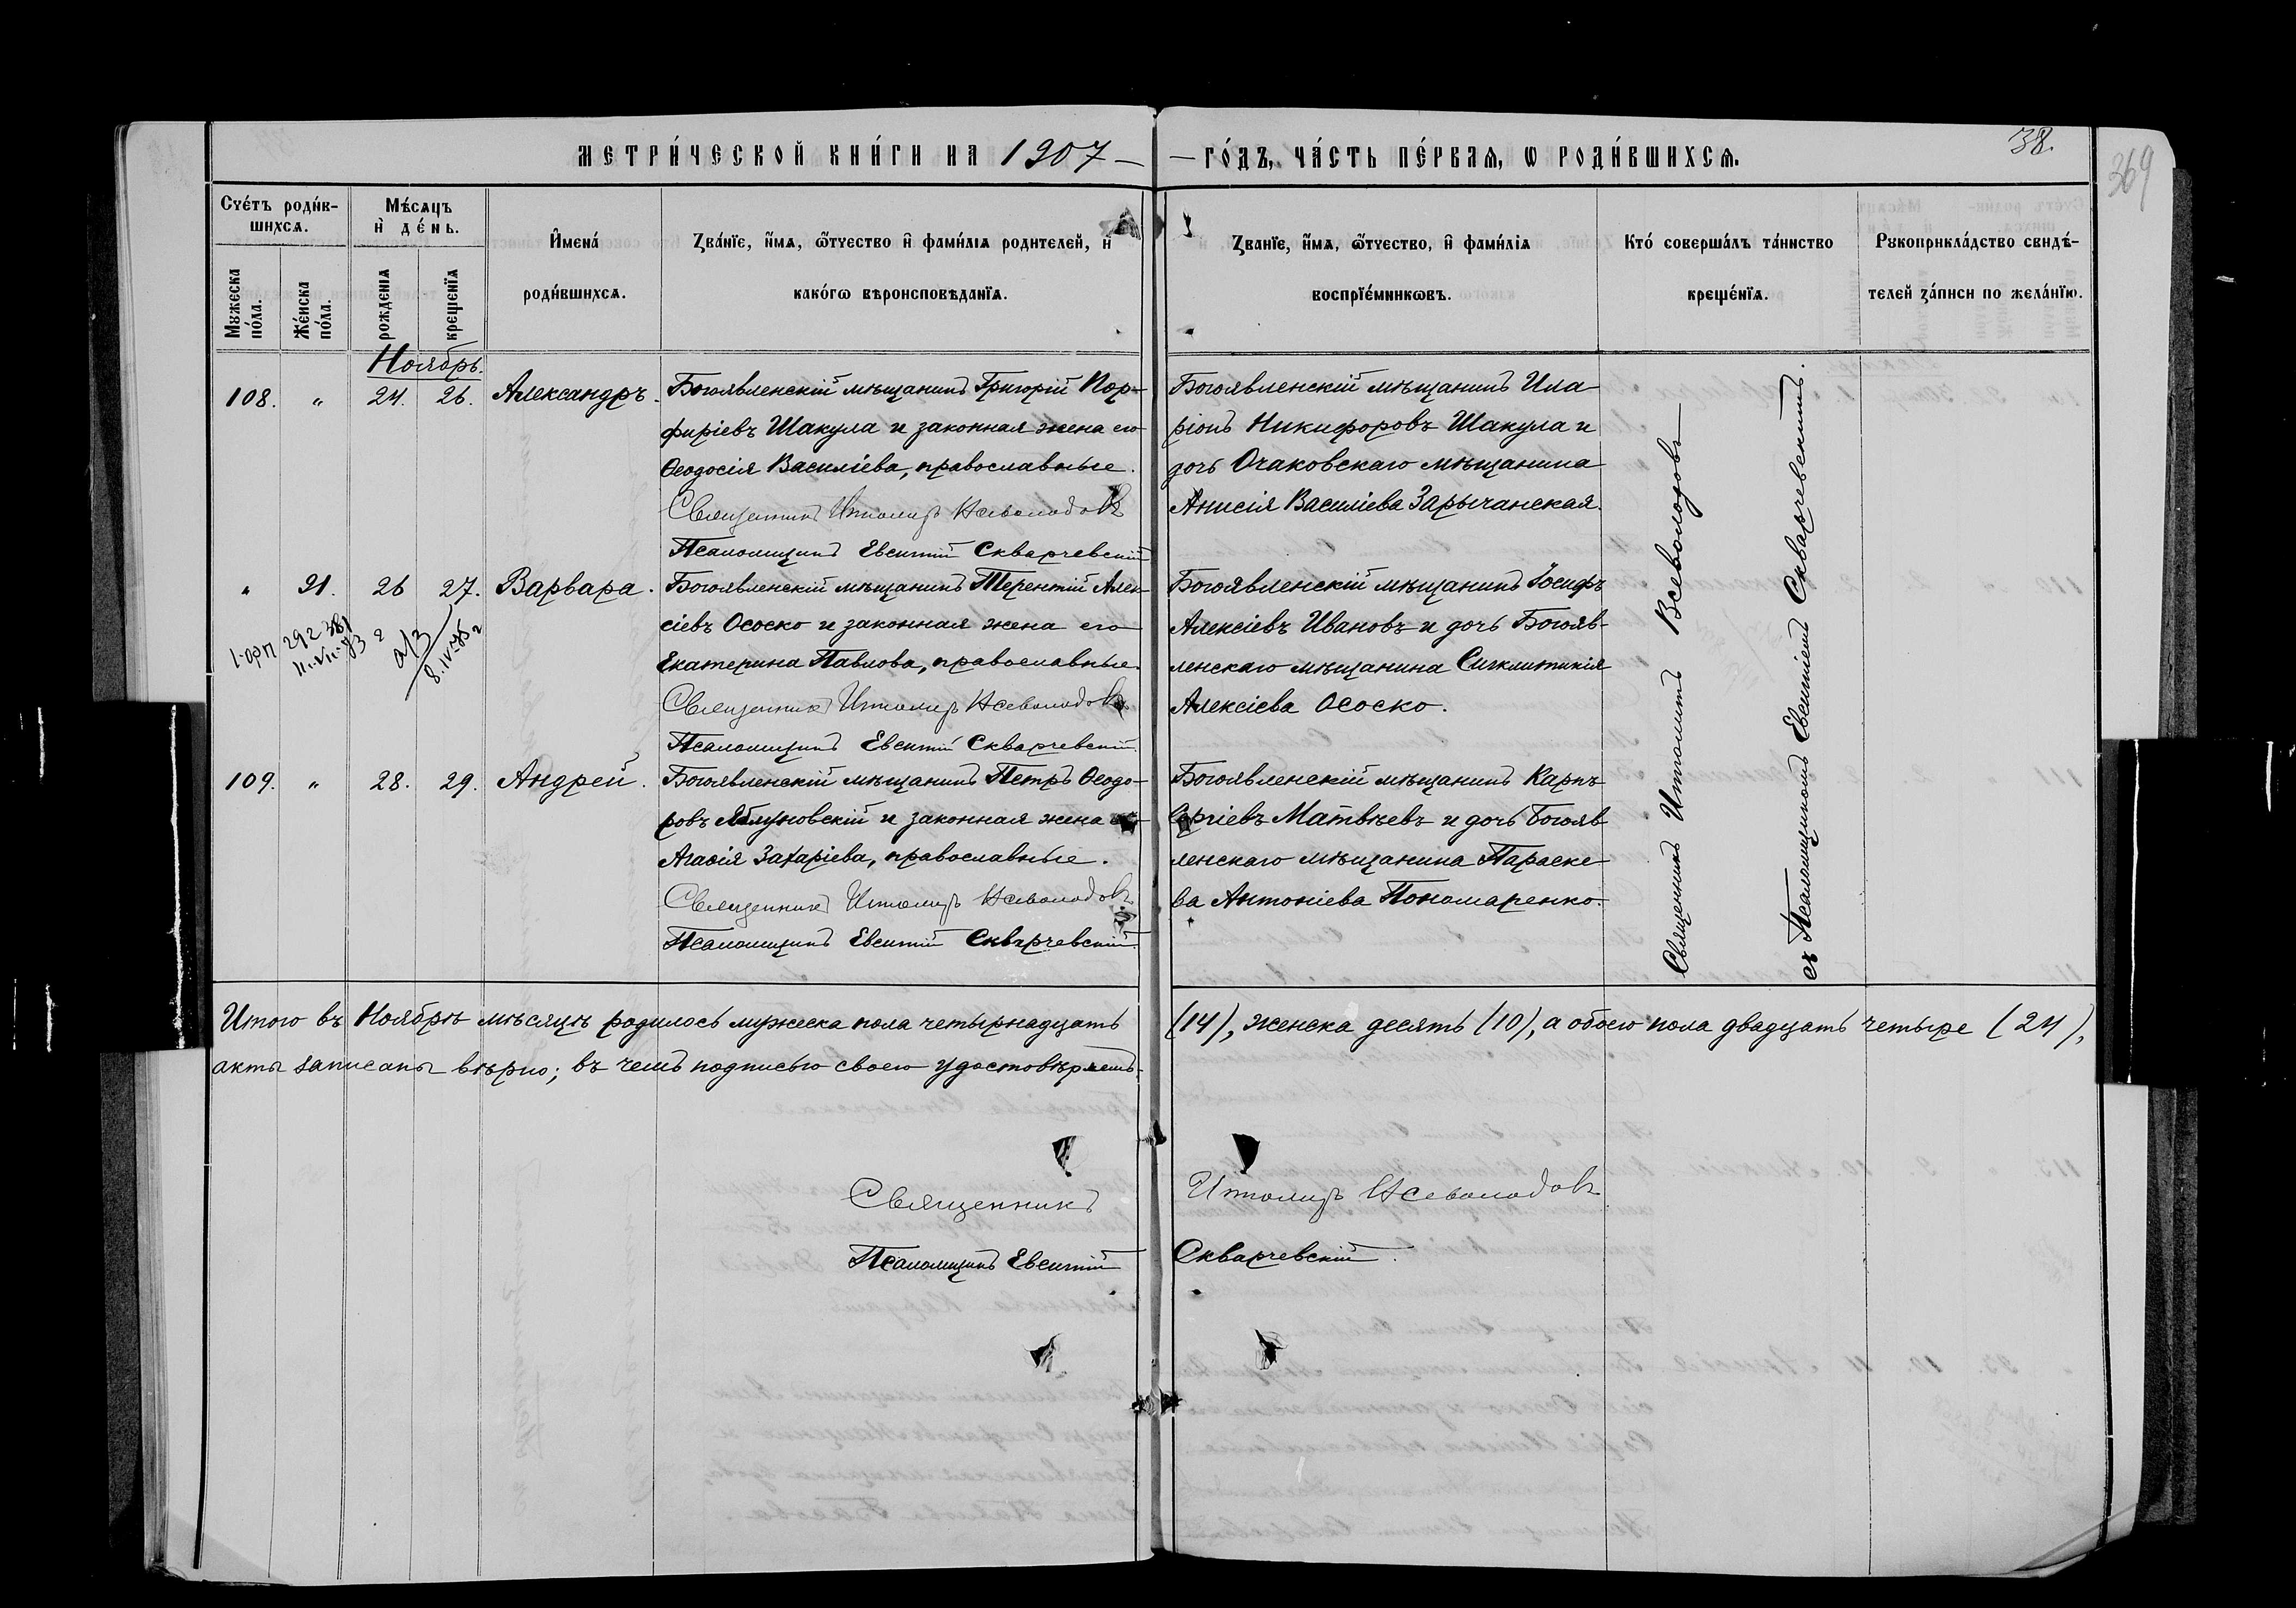 МЕТРИ́ЧЕСКОЙ КНИ́ГИ НА 1907 — — ГО́ДЪ, ЧА́СТЬ ПЕ́РВАѦ, Ѡ РОДИ́ВШИХСѦ.
38.
369
Счéтъ роди́в-
шихсѧ.
Мужеска по́ла.
Же́нска по́ла.
Мѣ́сѧцъ
и҆ де́нь.
рожденїѧ
крещенїѧ
И҆мена́
роди́вшихсѧ.
Зва́нїе, и҆́мѧ, ѻ҆́тчество и҆ фами́лїѧ родителей, и҆
како́гѡ вѣроисповѣданїѧ.
Званїе, и҆́мѧ, ѻ҆́тчество, и҆ фами́лїѧ
воспрїе́мникѡвъ.
Кто́ соверша́лъ та́инство
креще́нїѧ.
Рукоприкла́дство свидѣ́-
телей за́писи по жела́нїю.
Ноябрь.
108. " 24. 26. Александръ.
Богоявленскій мѣщанинъ Григорій Пор-
фиріевъ Шакула и законная жена его
Ѳеодосія Василіева, православные.
Священникъ Ипполитъ Всеволодовъ
Псаломщикъ Евсигній Скварчевскій
Богоявленскій мѣщанинъ Ила-
ріонъ Никифоровъ Шакула и
дочь Очаковскаго мѣщанина
Анисія Василіева Зарычанская.
" 91. 26 27. Варвара.
292381
8.IV-75
Богоявленскій мѣщанинъ Терентій Алек-
сіевъ Ососко и законная жена его
Екатерина Павлова, православные.
Священникъ Ипполитъ Всеволодовъ
Псаломщикъ Евсигній Скварчевскій.
Богоявленскій мѣщанинъ Іосифъ
Алексіевъ Ивановъ и дочь Богояв-
ленскаго мѣщанина Сигклитикія
Алексіева Ососко.
109. " 28. 29. Андрей.
Богоявленскій мѣщанинъ Петръ Ѳеодо-
ровъ Яблуновскій и законная жена его
Агаѳія Захаріева, православные.
Священникъ Ипполитъ Всеволодовъ
Псаломщикъ Евсигній Скварчевскій.
Богоявленскій мѣщанинъ Карпъ
Сергіевъ Матвѣевъ и дочь Богояв-
ленскаго мѣщанина Параске-
ва Антоніева Пономаренко.
Священникъ Ипполитъ Всеволодовъ
съ Псаломщикомъ Евсигніемъ Скварчевскимъ.
Итого въ Ноябрѣ мѣсяцѣ родилось мужеска пола четырнадцать (14), женска десять (10), а обоего пола двадцать четыре (24),
акты записаны вѣрно; въ чемъ подписью своею удостовѣряемъ.
Священникъ Ипполитъ Всеволодовъ
Псаломщикъ Евсигній Скварчевскій.